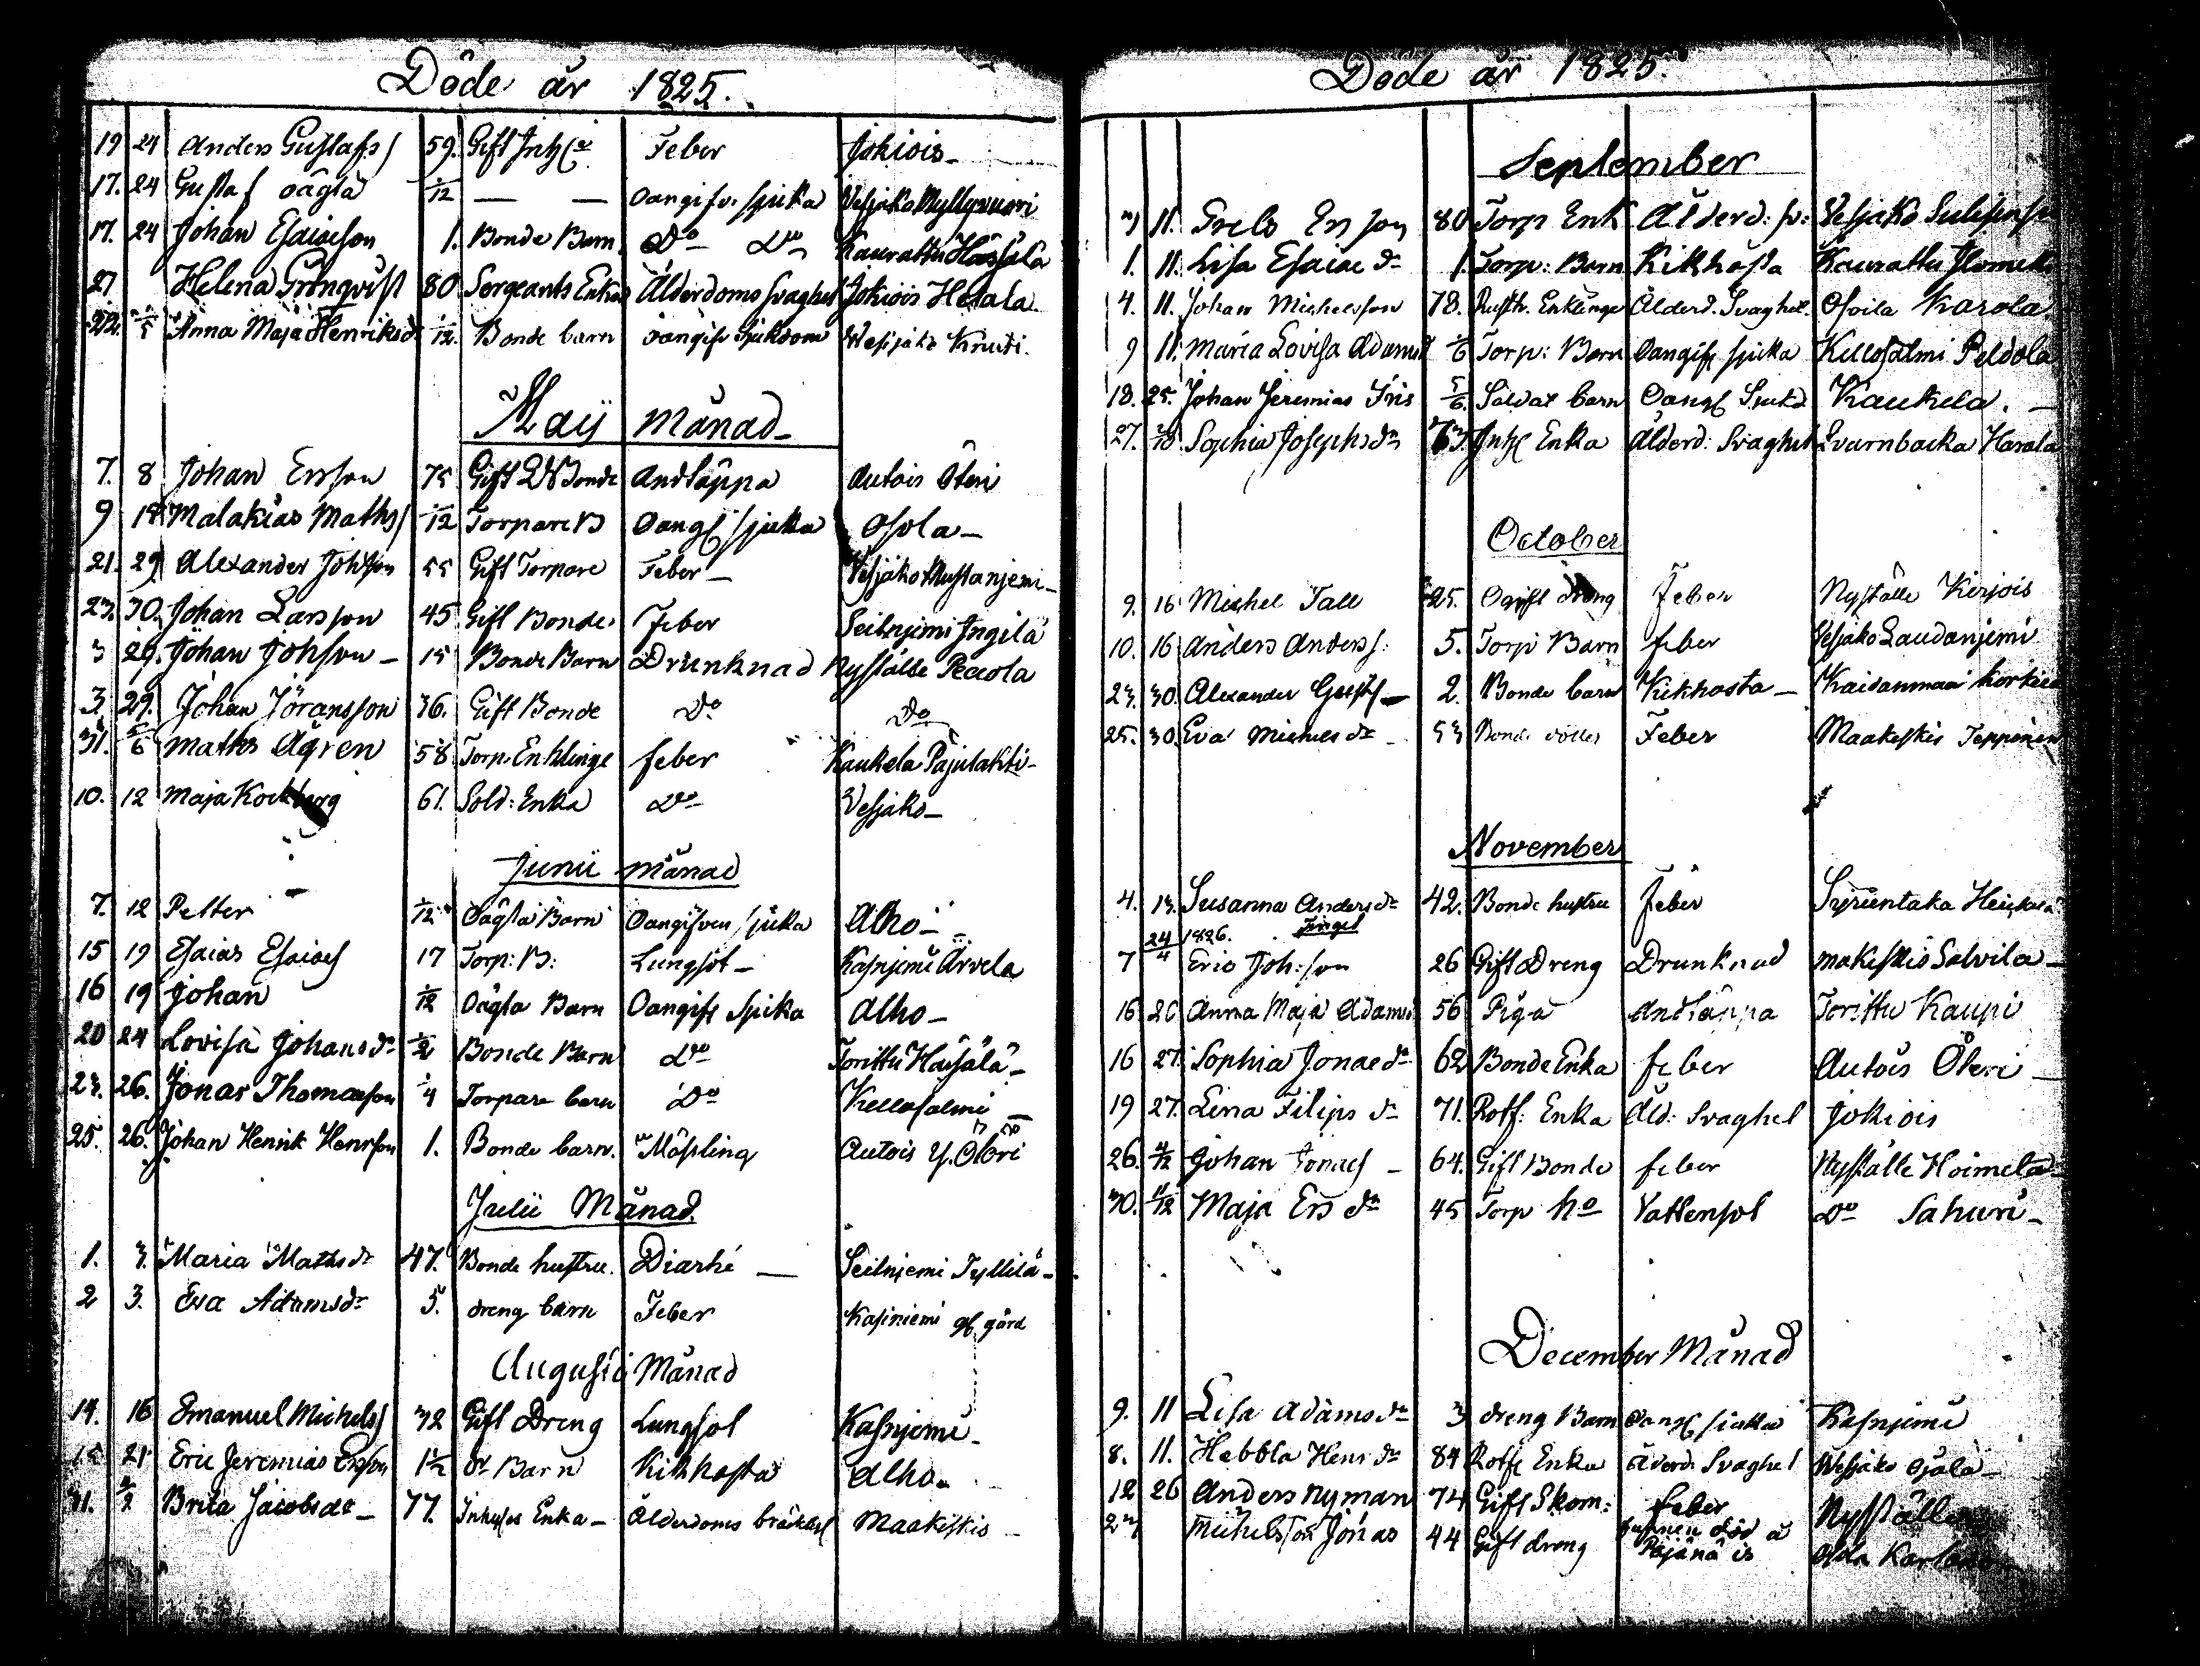 Döde år 1825.
19 24 Anders Gustafs/ 59. Gift Inh/e Feber Jokiois
17. 24 Gustaf oägta 1/12 — — Oangifv. sjuka Vesjako Myllyvuori
17. 24 Johan Esaiaeson 1. Bonde Barn Do Do Kaurattu Hassala
27 Helena Grönqvist 80 Sergeants Enka Ålderdoms svaghet Jokiois Hetala
22. 1/5 Anna Maja Henriksd 1/12. Bonde barn oangifv Sjukdom Wesijako Knuti.
Maij månad
7. 8 Johan Ersson 75 Gift Bonde Andtäppa Autois Öteri
9 Malakias Maths/ 1/12 Torpare B Oangf sjuka Osola
21. 29 Alexander Johsson 55 Gift Torpare Feber Vesjako Mustanjemi
23. 30. Johan Larsson 45 Gift Bonde Feber Seitnjemi Ingilä
3 29. Johan Johsson 15 Bonde Barn Drunknad Nystälde
3. 29. Johan Jöransson 36. Gift Bonde Do Do
31. 5/6 Maths Ågren 58 Torp. Enklinge feber Kaukela Pajulahti
10. 12 Maja Kockberg 61. Sold: Enka Do Vesjako
Junii månad
7. 12 Petter 1/12 Oägta Barn Oangifven sjuka Alho
15 19 Esaias Esaiaes 17 Torp: B: Lungsot Kasnjemi Arvela
16 19 Johan 1/12 Oägta Barn Oangifv Sjuka Alho
20 24 Lovisa Johansdr 1/2 Bonde Barn Do Torittu Haisälä
23. 26. Jonas Thomasson 1/4 Torpare barn Do Kellosalmi
25. 26. Johan Henrik Henrsson 1. Bonde barn. Mässling Autois Y. Öteri
Julii Månad.
1. 3. Maria Mathsdr 47. Bonde hustru. Diarhé Seitnjemi Tyllilä
2 3. Eva Adamsdr 5. dreng barn Feber Kasiniemi gård
Augusti Månad
14. 16 Emanuel Michels/ 32 Gift Dreng Lungsot Kasnjemi
15 21 Eric Jeremias Ersson 1 1/2 dr Barn Kikhosta Alho
31. 2/ Brita Jacobsdr 77. Inhyses Enka Ålderdoms bräcklf Maakeskis
Döde år 1825.
September
11. Ersson 80 Torp Enk Ålderd: sv: Vesjako
1. 11. Lisa Esaiae dr 1. Torp: Barn Kikhosta Kaurattu
4. 11. Johan Michelsson 78. Rusth. Enklinge Ålderd. Svaghet. Osoila Karola.
9 11. Maria Lovisa Adamsd 1/6 Torp: Barn Oangifv sjuka Kellosalmi Peldola
18. 25. Johan Jeremias Iris 5/6. Soldat barn Oangf Sjukd Kaukela.
27. 2/10 Sophia Josephsdr 63. Inhs Enka Ålderd: Svaghet Qvarnbacka Harala
October
9. 16 Michel Tall 25. Ogift dreng Feber Nyställe Kirjois
10. 16 Anders Anderss. 5. Torp Barn feber Vesjako Laudanjemi
23. 30. Alexander Gusts 2. Bonde barn Kikhosta Kaidanmaa
25. 30 Eva Michelsdr 53 Bonde Feber Maakeskis Teppinen
November
4. 13. Susanna Andersdr 42. Bonde hustru Feber Syrüntaka Heickilä
7 24/4 1826. Eric Joh:son 26 Gift Dreng Drunknad Makeskis Salvila
16 20 Anna Maja Adamsd 56 Piga Andtäppa Torittu Kaupi
16 27. Sophia Jonaedr 62 Bonde Enka feber Autois Öteri
19 27. Lena Filips dr 71. Rotf: Enka Åld: Svaghet Jokiois
26. 4/12 Johan Jonaes 64. Gift Bonde feber Nyställe Hoimela
30. 11/12 Maja Ers dr 45 Torp ho Vattensot Do Sahuri
December Månad
9. 11 Lisa Adamsdr 3 dreng Barn Oangf sjukka Kasnjemi
8. 11. Hebbla Henrdr 84 Rotfs Enka Ålderd Svaghet Wesjako Ojala
12 26 Anders Nyman 74 Gift Skom: feber Nyställe
23 Michelsson Jonas 44 Gift dreng funnen död å Päjänä is